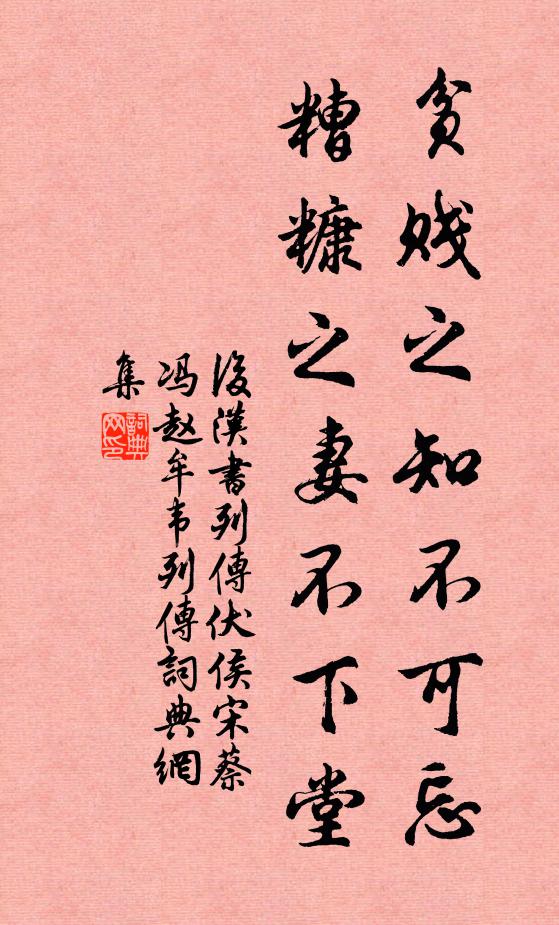 貧賤之知不可忘
糟糠之妻不下堂
後漢書列傳伏侯宋蔡
冯赵牟韦列傳詞典網
集
詞典
网印